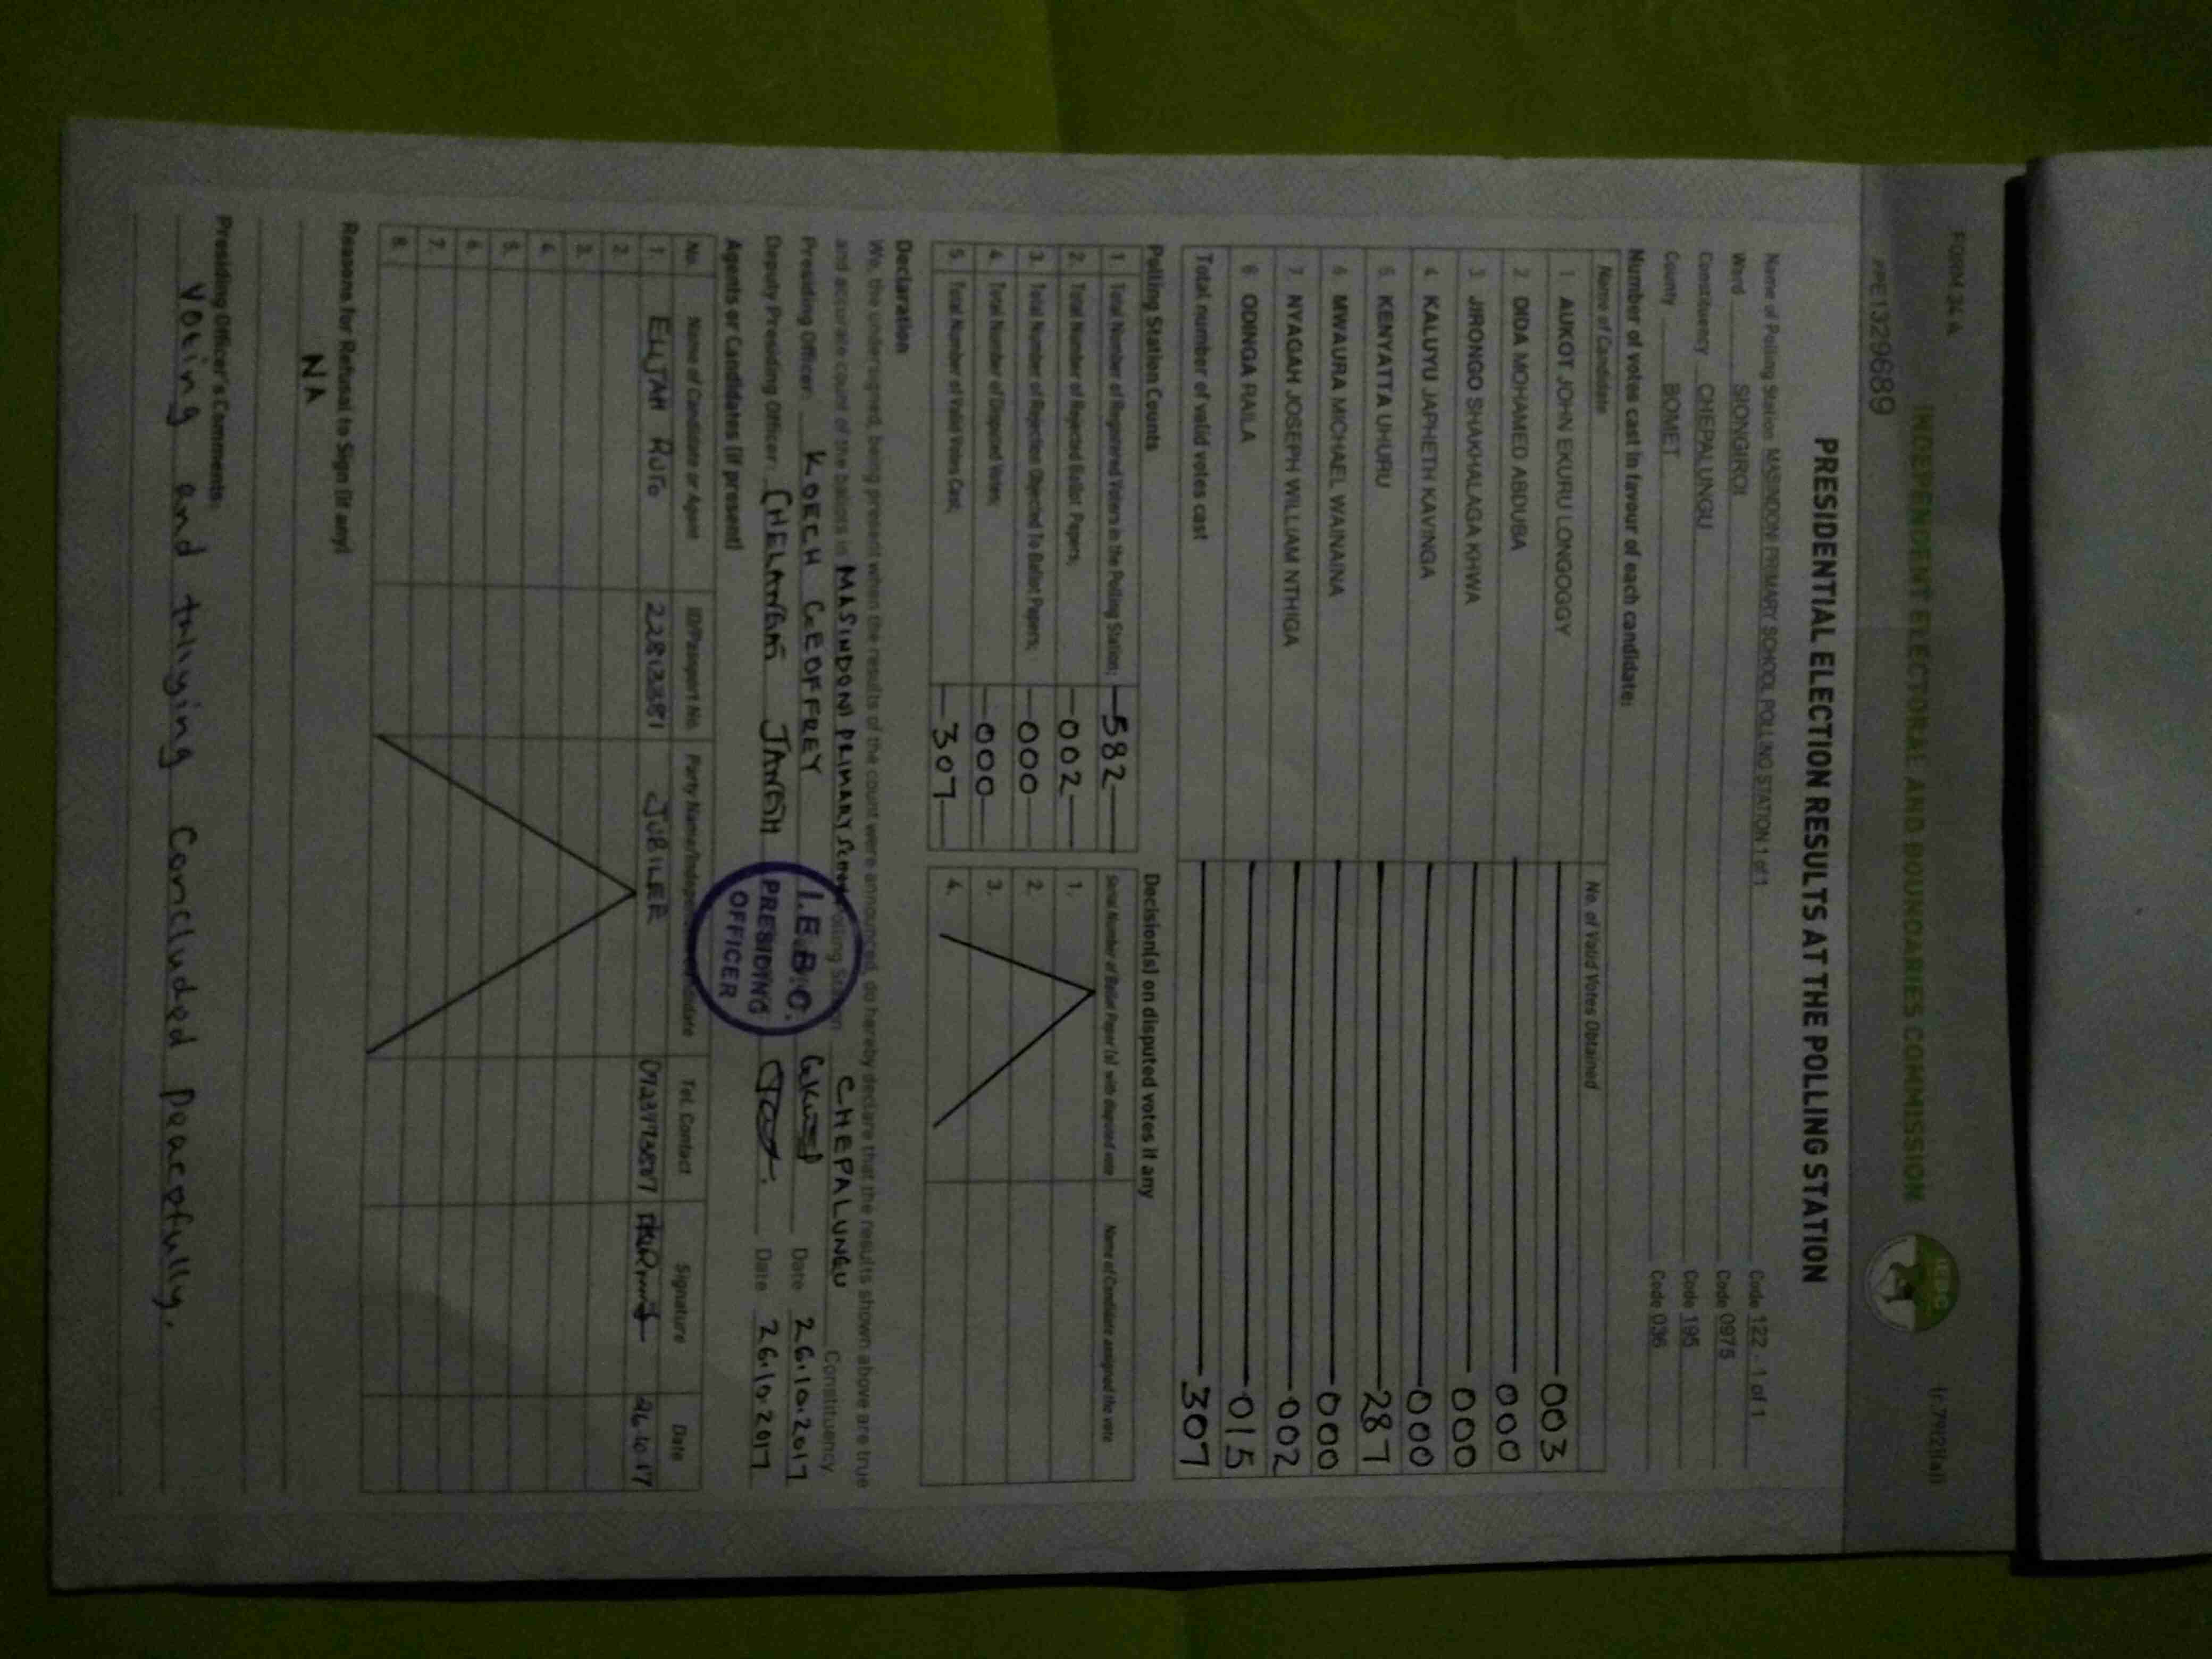 FORM 34 A
INDEPENDENT ELECTORAL AND BOUNDARIES COMMISSION
PPE1329689
PRESIDENTIAL ELECTION RESULTS AT THE POLLING STATION
Name of Polling Station MASINDONI PRIMARY SCHOOL POLLING STATION 1 of 1 Code 122 . 1 of 1
Ward SIONGIROI Code 0975
Constituency CHEPALUNGU Code 195
County BOMET Code 036
Number of votes cast in favour of each candidate:
Name of Candidate No. of Valid Votes Obtained
1 AUKOT JOHN EKURU LONGOGGY 003
2 DIDA MOHAMED ABDUBA 000
3 JIRONGO SHAKHALAGA KHWA 000
4 KALUYU JAPHETH KAVINGA 000
5. KENYATTA UHURU 287
6 MWAURA MICHAEL WAINAINA 000
7. NYAGAH JOSEPH WILLIAM NTHIGA 002
8 ODINGA RAILA 015
Total number of valid votes cast 307
Polling Station Counts Decision(s) on disputed votes if any
1. Total Number of Registered Voters in the Polling Station; 582
2. Total Number of Rejected Ballot Papers; 002
3. Total Number of Rejection Objected To Ballot Papers; 000
4. Total Number of Disputed Votes; 000
5. Total Number of Valid Votes Cast; 307
Serial Number of Ballot Paper (s) with disputed vote Name of Candidate assigned the vote
1.
2.
3.
4.
Declaration
We, the undersigned, being present when the results of the count were announced, do hereby declare that the results shown above are true
and accurate count of the ballots in MASINDONI PRIMARY Polling Station CHEPALUNGU Constituency
Presiding Officer: KOECH GEOFFREY Date 26.10.2017
Deputy Presiding Officer: JANETH Date 26.10.2017
I.E.B.C.
PRESIDING
OFFICER
Agents or Candidates (if present)
No. Name of Candidate or Agent ID/Passport No. Party Name/Independent Candidate Tel. Contact Signature Date
1. ELIJAH RUTO JUBILEE 26.10.17
2.
3.
4.
5.
6.
7.
8.
Reasons for Refusal to Sign (if any)
NA
Presiding Officer's Comments:
Voting and tallying Concluded peacefully.